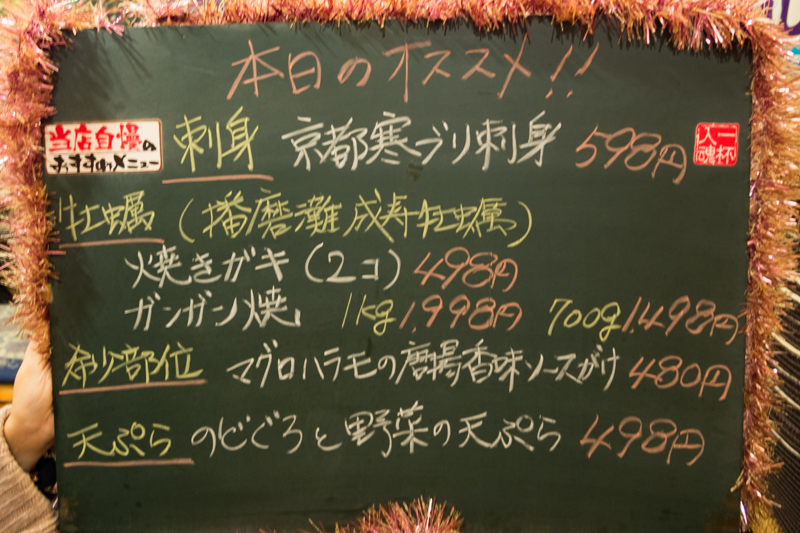 本日のオススメ!!
当店自慢の
おすすめメニュー
刺身 京都寒ブリ刺身 598円
一杯
入魂
牡蠣(播磨灘成寿牡蠣)
焼きガキ(2コ)498円
ガンガン焼 1kg1,998円 700g1,498円
希少部位 マグロハラモの唐揚香味ソースがけ 480円
天ぷら のどぐろと野菜の天ぷら 498円